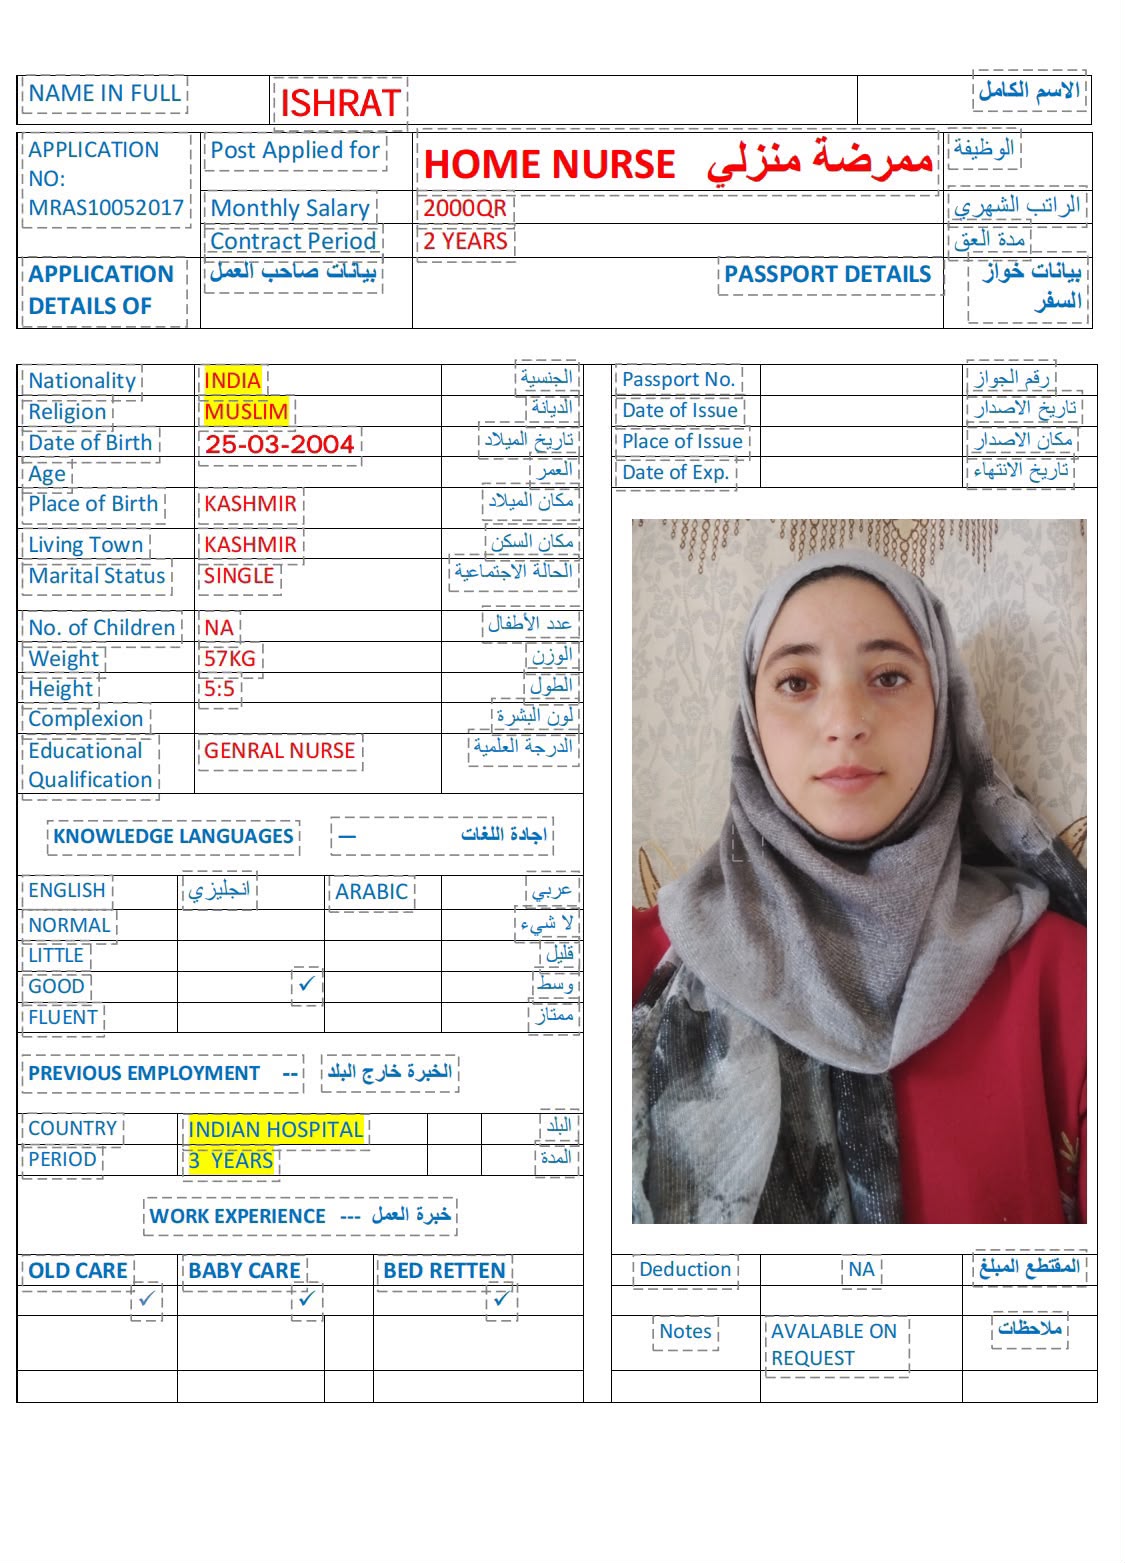 NAME IN FULL ISHRAT الاسم الكامل
APPLICATION NO: MRAS10052017 Post Applied for HOME NURSE ممرضة منزلي الوظيفة
Monthly Salary 2000QR الراتب الشهري
Contract Period 2 YEARS مدة العق
APPLICATION DETAILS OF بيانات صاحب العمل PASSPORT DETAILS بيانات خواز السفر
Nationality INDIA الجنسية
Religion MUSLIM الديانة
Date of Birth 25-03-2004 تاريخ الميلاد
Age العمر
Place of Birth KASHMIR مكان الميلاد
Living Town KASHMIR مكان السكن
Marital Status SINGLE الحالة الاجتماعية
No. of Children NA عدد الأطفال
Weight 57KG الوزن
Height 5:5 الطول
Complexion لون البشرة
Educational Qualification GENRAL NURSE الدرجة العلمية
KNOWLEDGE LANGUAGES — اجادة اللغات
ENGLISH انجليزي ARABIC عربي
NORMAL لا شيء
LITTLE قليل
GOOD ✓ وسط
FLUENT ممتاز
PREVIOUS EMPLOYMENT -- الخبرة خارج البلد
COUNTRY INDIAN HOSPITAL البلد
PERIOD 3 YEARS المدة
WORK EXPERIENCE --- خبرة العمل
OLD CARE BABY CARE BED RETTEN
✓ ✓ ✓
Passport No. رقم الجواز
Date of Issue تاريخ الاصدار
Place of Issue مكان الاصدار
Date of Exp. تاريخ الانتهاء
Deduction NA المقتطع المبلغ
Notes AVALABLE ON REQUEST ملاحظات